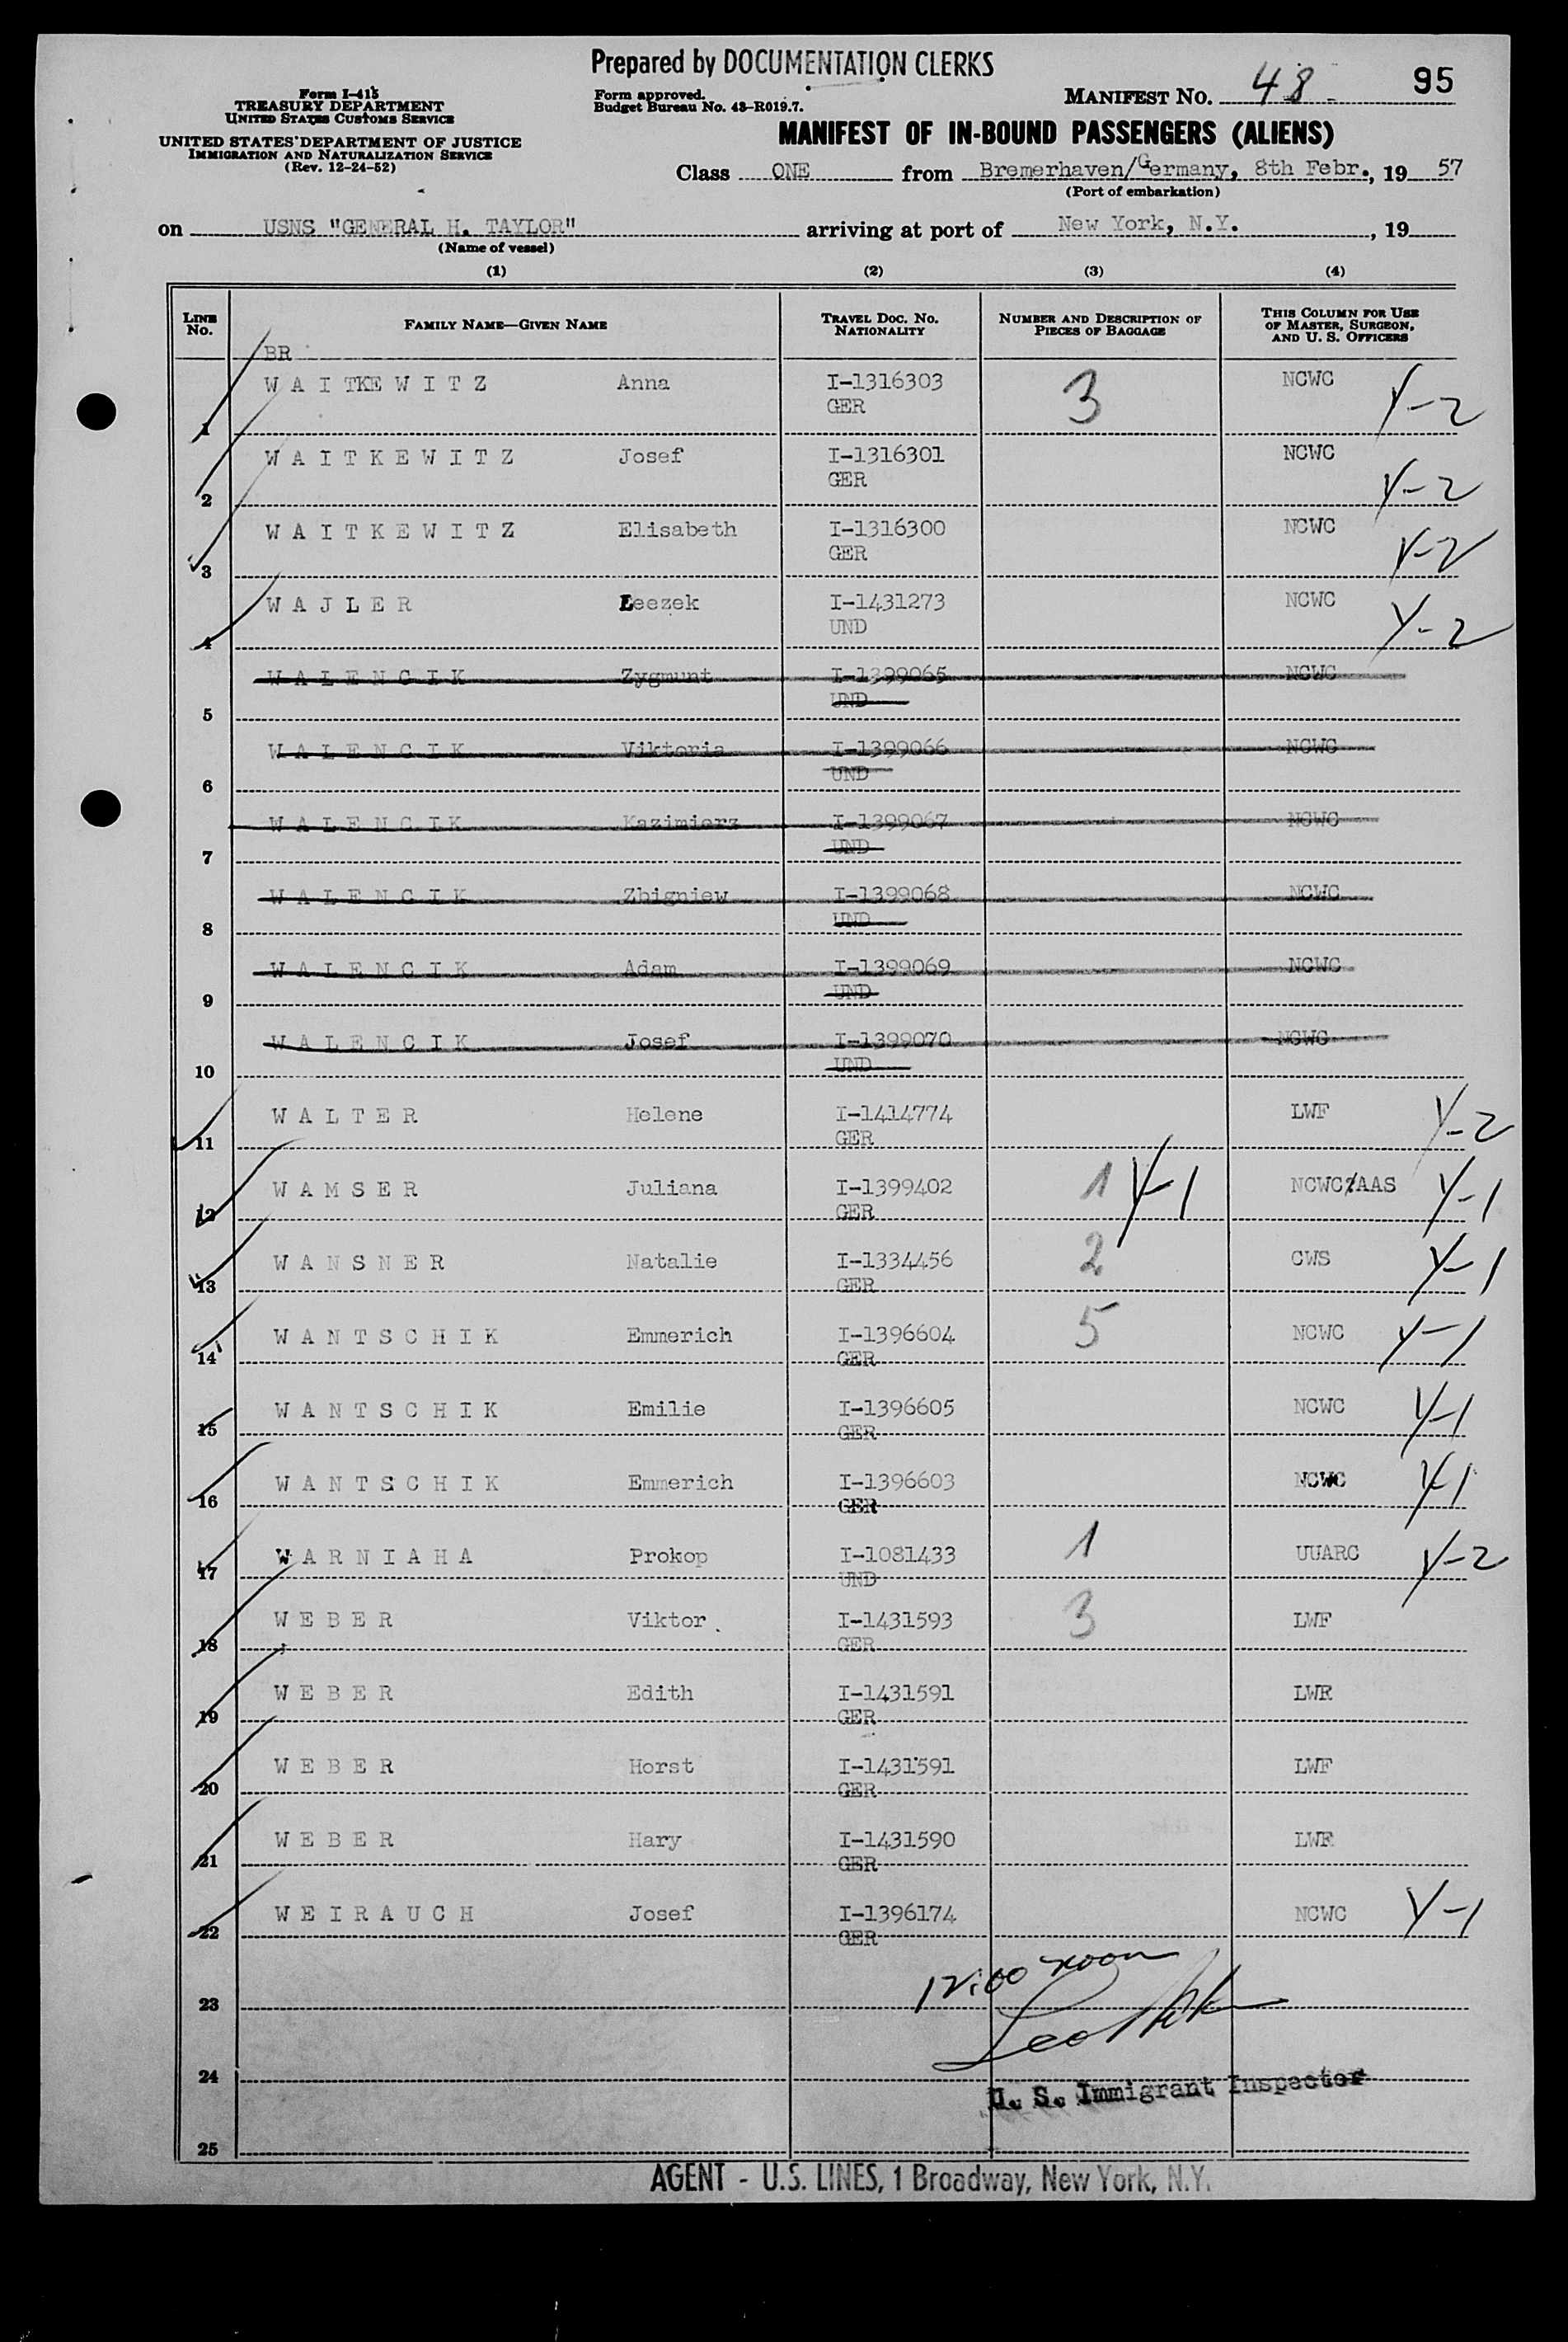 Prepared by DOCUMENTATION CLERKS
Form I-415
TREASURY DEPARTMENT
UNITED STATES CUSTOMS SERVICE
UNITED STATES DEPARTMENT OF JUSTICE
IMMIGRATION AND NATURALIZATION SERVICE
(Rev. 12-24-52)
Form approved.
Budget Bureau No. 43-R019.7.
MANIFEST No. 48 95
MANIFEST OF IN-BOUND PASSENGERS (ALIENS)
Class ONE from Bremerhaven/Germany, 8th Febr., 19 57
(Port of embarkation)
on USNS "GENERAL H. TAYLOR" arriving at port of New York, N.Y. , 19
(Name of vessel)
(1) (2) (3) (4)
LINE No. FAMILY NAME—GIVEN NAME TRAVEL DOC. No. NATIONALITY NUMBER AND DESCRIPTION OF PIECES OF BAGGAGE THIS COLUMN FOR USE OF MASTER, SURGEON, AND U. S. OFFICERS
BR
W A I TKE W I T Z Anna I-1316303 3 NCWC Y-2
1 GER
W A I T K E W I T Z Josef I-1316301 NCWC Y-2
2 GER
W A I T K E W I T Z Elisabeth I-1316300 NCWC Y-2
3 GER
W A J L E R Leezek I-1431273 NCWC Y-2
4 UND
W A L E N C I K Zygmunt I-1399065 NCWC
5 UND
W A L E N C I K Viktoria I-1399066 NCWC
6 UND
W A L E N C I K Kazimierz I-1399067 NCWC
7 UND
W A L E N C I K Zbigniew I-1399068 NCWC
8 UND
W A L E N C I K Adam I-1399069 NCWC
9 UND
W A L E N C I K Josef I-1399070 NCWC
10 UND
W A L T E R Helene I-1414774 LWF Y-2
11 GER
W A M S E R Juliana I-1399402 1 Y-1 NCWC/AAS Y-1
12 GER
W A N S N E R Natalie I-1334456 2 CWS Y-1
13 GER
W A N T S C H I K Emmerich I-1396604 5 NCWC Y-1
14 GER
W A N T S C H I K Emilie I-1396605 NCWC Y-1
15 GER
W A N T S C H I K Emmerich I-1396603 NCWC Y-1
16 GER
W A R N I A H A Prokop I-1081433 1 UUARC Y-2
17 UND
W E B E R Viktor I-1431593 3 LWF
18 GER
W E B E R Edith I-1431591 LWR
19 GER
W E B E R Horst I-1431591 LWF
20 GER
W E B E R Hary I-1431590 LWF
21 GER
W E I R A U C H Josef I-1396174 NCWC Y-1
22 GER
12:00 noon
23
24
U. S. Immigrant Inspector
25
AGENT - U.S. LINES, 1 Broadway, New York, N.Y.